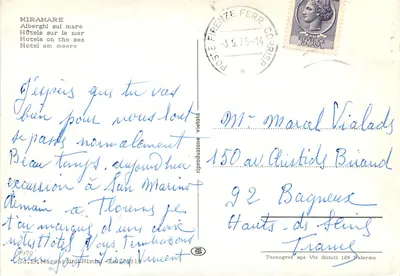 MIRAMARE
Alberghi sul mare
Hôtels sur la mer
Hotels on the sea
Hotel am meere
POSTE FIRENZE FERR. CORRISP.
-3.5.75-14
J'espère que tu vas
bien pour nous tout
se passe normalement
Beau temps. aujourd'hui
excursion à San Marino
demain à Florence je
t'ai
d'une croix
notre Hôtel Nous t'embrassons
Vincent
riproduzione vietata
Mr Marcel Vialads
150 av Aristide Briand
92 Bagneux
Hauts-de-Seine
France